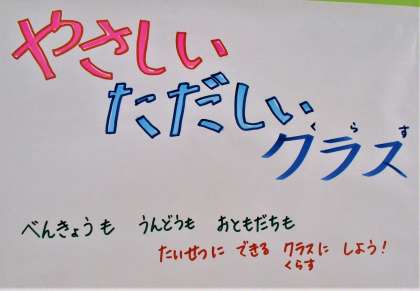 やさしい
ただしい
クラス
くらす
べんきょうも うんどうも おともだちも
たいせつに できる クラスに しよう!
くらす